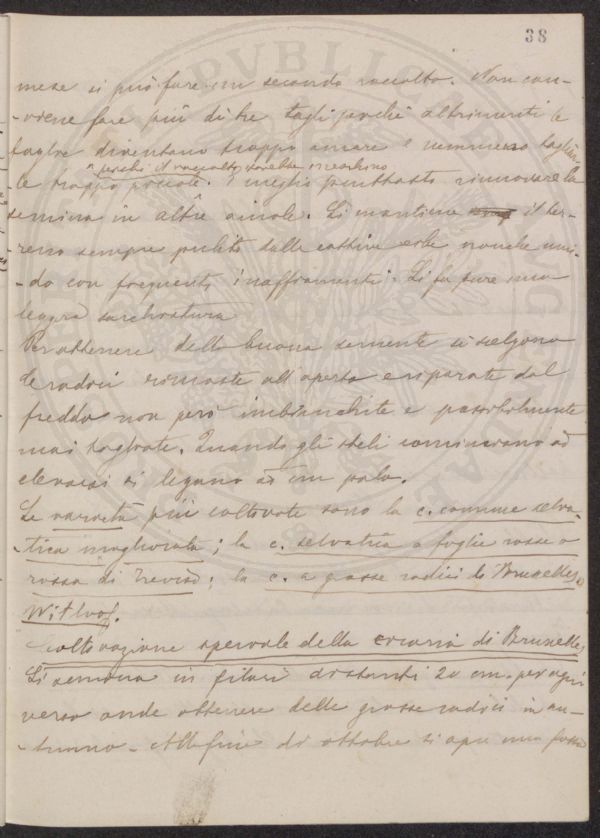 38
mese si può fare un secondo raccolto. Non con-
-viene fare più di tre tagli perchè altrimenti le
foglie diventano troppo amare e nemmeno tagliar-
perchè il raccolto sarebbe meschino
le troppo piccole. È meglio piuttosto rinnovare la
semina in altre aiuole. Si mantiene il ter-
-reno sempre pulito dalle cattive erbe nonchè umi-
-do con frequenti inaffiamenti. Si fa pure una
leggera sarchiatura
Per ottenere della buona semente si scelgono
le radici rimaste all'aperto e riparate dal
freddo non però imbianchite e possibilmente
mai tagliate. Quando gli steli cominciano ad
elevarsi si legano ad un palo.
Le varietà più coltivate sono la c. comune selva-
-tica migliorata; la c. selvatica a foglie rosse o
rossa di Treviso; la c. a grosse radici di Bruxelles o
Witloof.
Coltivazione speciale della cicoria di Bruxelles
Si semina in filari distanti 20 cm. per ogni
verso onde ottenere delle grosse radici in au-
-tunno. Alla fine di ottobre si apre una fossa